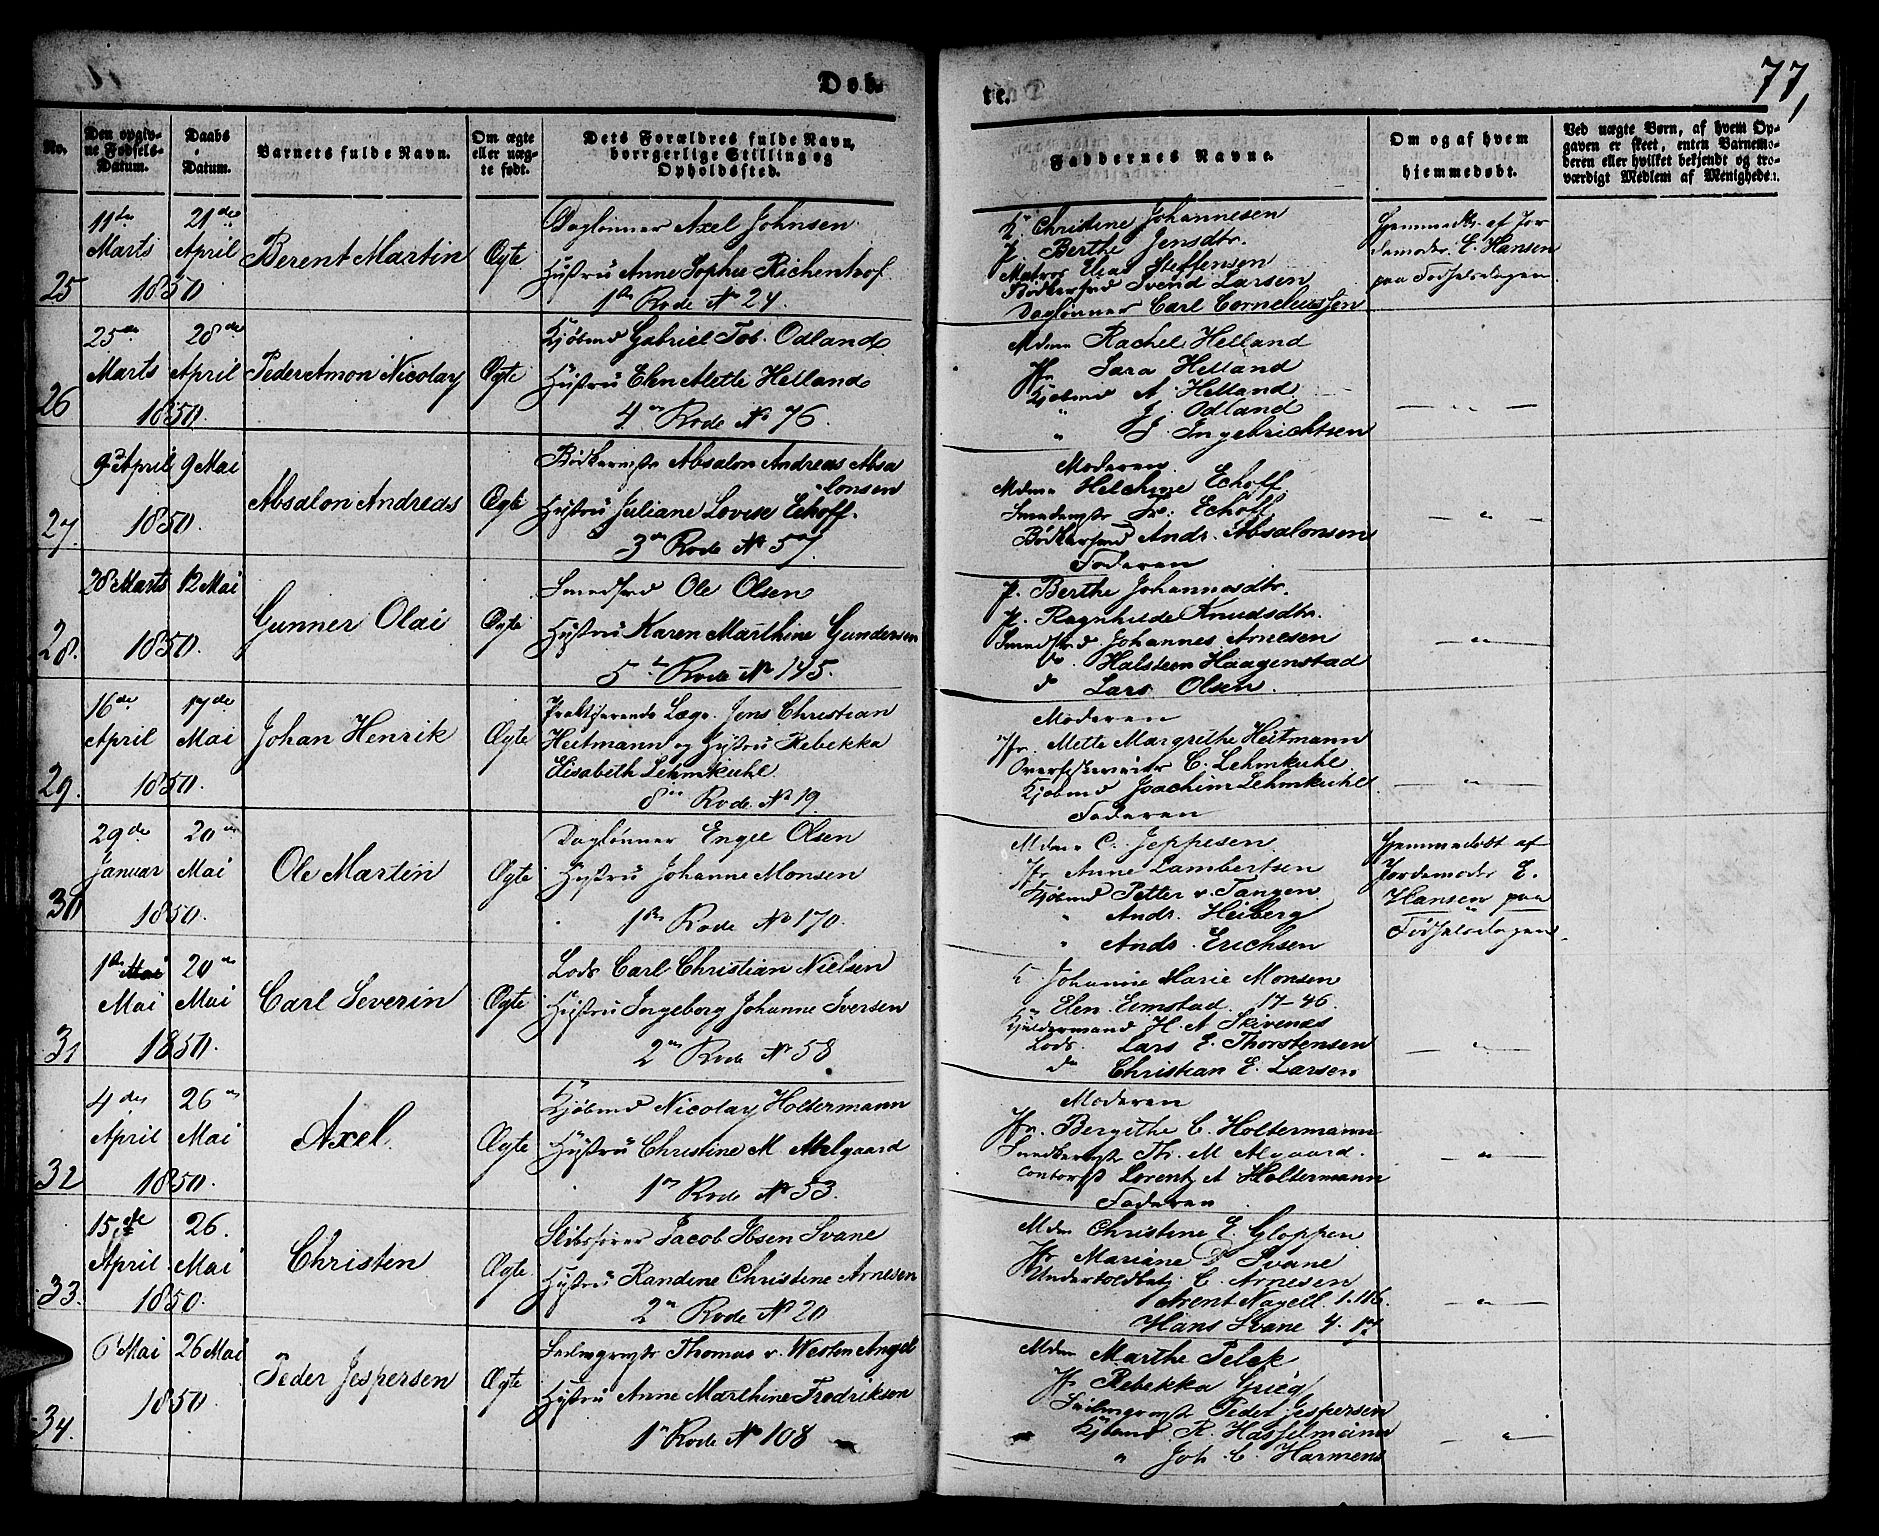 Døb-
te.
77,
No.
Den opgiv-
ne Fødsels-
Datum.
Daabs
Datum.
Barnets fulde Navn.
Om ægte
eller uæg-
te født.
Dets Forældres fulde Navn,
borgerlige Stilling og
Opholdssted.
Faddernes Navne.
Om og af hvem
hjemmedøbt.
Ved uægte Børn, af hvem Op-
gaven er skeet, enten Barnemo-
deren eller hvilket bekjendt og tro-
værdigt Medlem af Menigheden.
25
11te
Marts
21de
April
1850
Berent Martin
Ægte
Daglønner Axel Johnsen
Hustru Anne Sophie Richenhof
1te Rode No 24.
K. Christine Johannesen
P. Berthe Jensdtr.
Matros Elias Steffensen
Bødkersvd Svend Larsen
Daglønner Carl Corneliussen
Hjemmedbt. af Jor
demoder E. Hansen
paa Fødselsdagen
26
25de
Marts
28de
April
1850.
Peder Amon Nicolay
Ægte
Kjøbmd Gabriel Tob. Odland
Hustru Elen Alette Helland
4de Rode No 76.
Mdme Rachel Helland
Jfr. Sara Helland
Kjøbmd A. Helland
" J. Odland
" J. Ingebrichtsen
— " —
27.
9 April
9 Mai
1850.
Absalon Andreas
Ægte
Bødkermstr Absalon Andreas Absa
lonsen
Hustru Juliane Lovise Echoff.
3de Rode No 57
Moderen
Mdme Helchine Echoff
Smedemstr Fr. Echoff
Bødkersvd Andr. Absalonsen
Faderen
— " —
28.
28 Marts
12 Mai
1850.
Gunner Olai
Ægte
Smedsvd Ole Olsen
Hustru Karen Marthine Gundersen
5te Rode No 145.
P. Berthe Johannesdtr.
P. Ragnhilde Knudsdtr.
Smedsvd Johannes Arnesen
do. Halsteen Haagenstad
do Lars Olsen.
— " —
29.
16de
April
17de
Mai
1850.
Johan Henrik
Ægte
Praktiserende Læge Jens Christian
Heitmann og Hustru Rebekka
Elisabeth Lehmkuhl
8de Rode No 19
Moderen
Jfr. Mette Margrethe Heitmann
C. Lehmkuhl
Kjøbmd Joachim Lehmkuhl
Faderen
— " —
30
29de
Januar
20de
Mai
1850.
Ole Martin
Ægte
Daglønner Engel Olsen
Hustru Johanne Monsen
1te Rode No 170.
Mdme C. Jeppesen
Jfr. Anne Lambertsen
Kjøbmd Petter v. Tangen
" Andr. Heiberg
" Andr. Erichsen
Hjemmedøbt af
Jordemoder E.
Hansen paa
Fødselsdagen
31
1te Mai
Mai
20de
Mai
1850.
Carl Severin
Ægte
Lods Carl Christian Nielsen
Hustru Ingeborg Johanne Iversen
2den Rode No 58.
K. Johanne Marie Monsen
" Elen Eimstad. 17-46.
Kjeldermand H. A Skivenes
Lods. Lars E. Thorstensen
do Christian E. Larsen
— " —
32
4des
April
26de
Mai
1850.
Axel.
Ægte
Kjøbmd Nicolay Holtermann
Hustru Christine M Melgaard
1te Rode No 53.
Moderen
Jfr. Bergithe C. Holtermann
Th. M Algaard.
Contorist Lorentz A Holtermann
Faderen
— " —
33.
15de
April
26.
Mai
1850.
Christen
Ægte
Skibsfører Jacob Ibsen Svane
Hustru Randine Christine Arnesen
2den Rode No 20
Mdm Christine E. Gloppen
Jfr Mariane D Svane
Undertoldbetj. C. Arnesen
Arent Nagell. 1.116.
Hans Svane 4.
— " —
34.
6 Mai
26 Mai
1850.
Peder Jespersen
Ægte
Seilmagermstr Thomas v. Westen Angel
Hustru Anne Marthine Fredriksen
1te Rode No 108
Mdm Marthe Pelck
Jfr Rebekka Grieg
Seilmagermstr Peder Jespersen
Kjøbmd. R. Hasselmann
" Joh. C. Harmens
— " —